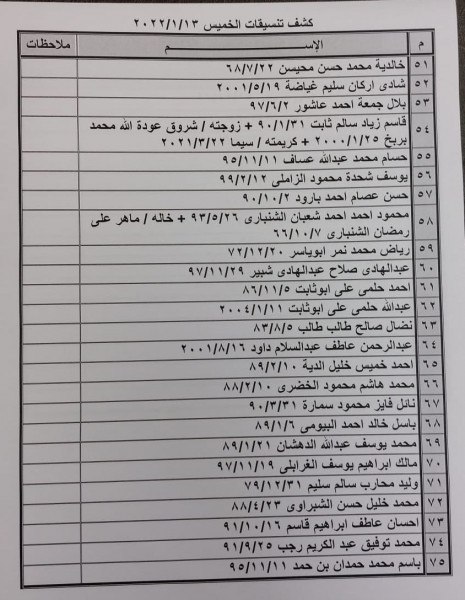 كشف تنسيقات الخميس ٢٠٢٢/١/١٣
م الإســـــــم ملاحظات
٥١ خالدية محمد حسن محيسن ٦٨/٧/٢٢
٥٢ شادى اركان سليم غياضة ٢٠٠١/٥/١٩
٥٣ بلال جمعة احمد عاشور ٩٧/٦/٢
٥٤ قاسم زياد سالم ثابت ٩٠/١/٣١ + زوجته / شروق عودة الله محمد
بربخ ٢٠٠٠/١/٢٥ + كريمته / سيما ٢٠٢١/٣/٢٢
٥٥ حسام محمد عبدالله عساف ٩٥/١١/١١
٥٦ يوسف شحدة محمود الزاملى ٩٩/٢/١٢
٥٧ حسن عصام احمد بارود ٩٠/١٠/٢
٥٨ محمود احمد احمد شعبان الشنبارى ٩٣/٥/٢٦ + خاله / ماهر على
رمضان الشنبارى ٦٦/١٠/٧
٥٩ رياض محمد نمر ابوياسر ٧٢/١٢/٢٠
٦٠ عبدالهادى صلاح عبدالهادى شبير ٩٧/١١/٢٩
٦١ احمد حلمى على ابوثابت ٨٦/١١/٥
٦٢ عبدالله حلمى على ابوثابت ٢٠٠٤/١/١١
٦٣ نضال صالح طالب طالب ٨٣/٨/٥
٦٤ عبدالرحمن عاطف عبدالسلام داود ٢٠٠١/٨/١٦
٦٥ احمد خميس خليل الدية ٨٩/٢/١٠
٦٦ محمد هاشم محمود الخضرى ٨٨/٢/١٠
٦٧ نائل فايز محمود سمارة ٩٠/٣/٣١
٦٨ باسل خالد احمد البيومى ٨٩/١/٦
٦٩ محمد يوسف عبدالله الدهشان ٨٩/١/٢١
٧٠ مالك ابراهيم يوسف الغرابلي ٩٧/١١/١٩
٧١ وليد محارب سالم سليم ٧٩/١٢/٣١
٧٢ محمد خليل حسن الشبراوى ٨٨/٤/٢٣
٧٣ احسان عاطف ابراهيم قاسم ٩١/١٠/١٦
٧٤ محمد توفيق عبد الكريم رجب ٩١/٩/٢٥
٧٥ باسم محمد حمدان بن حمد ٩٥/١١/١١